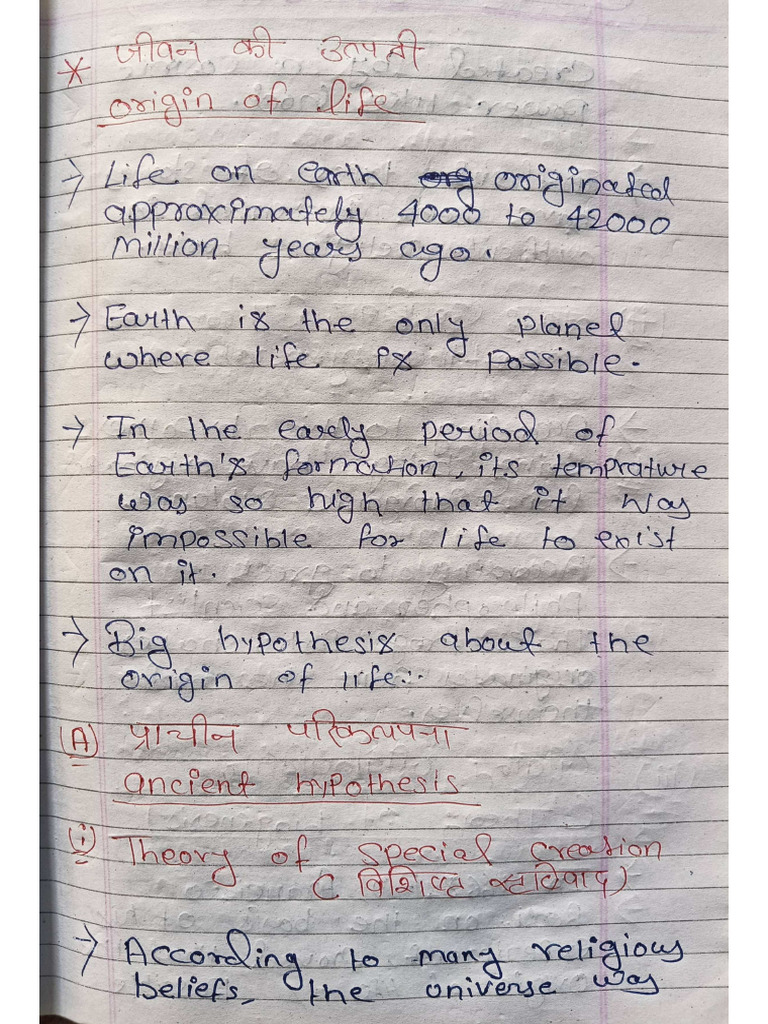 * जीवन की उतपत्ती
origin of life
→ Life on earth originated
approximately 4000 to 42000
million years ago.
→ Earth is the only planet
where life is possible.
→ In the early period of
Earth's formation, its temprature
was so high that it was
impossible for life to exist
on it.
→ Big hypothesis about the
origin of life:-
(A) प्राचीन परिकल्पना
ancient hypothesis
(i) Theory of special creation
( विशिष्ट सृष्टिवाद)
→ According to many religious
beliefs, the universe was